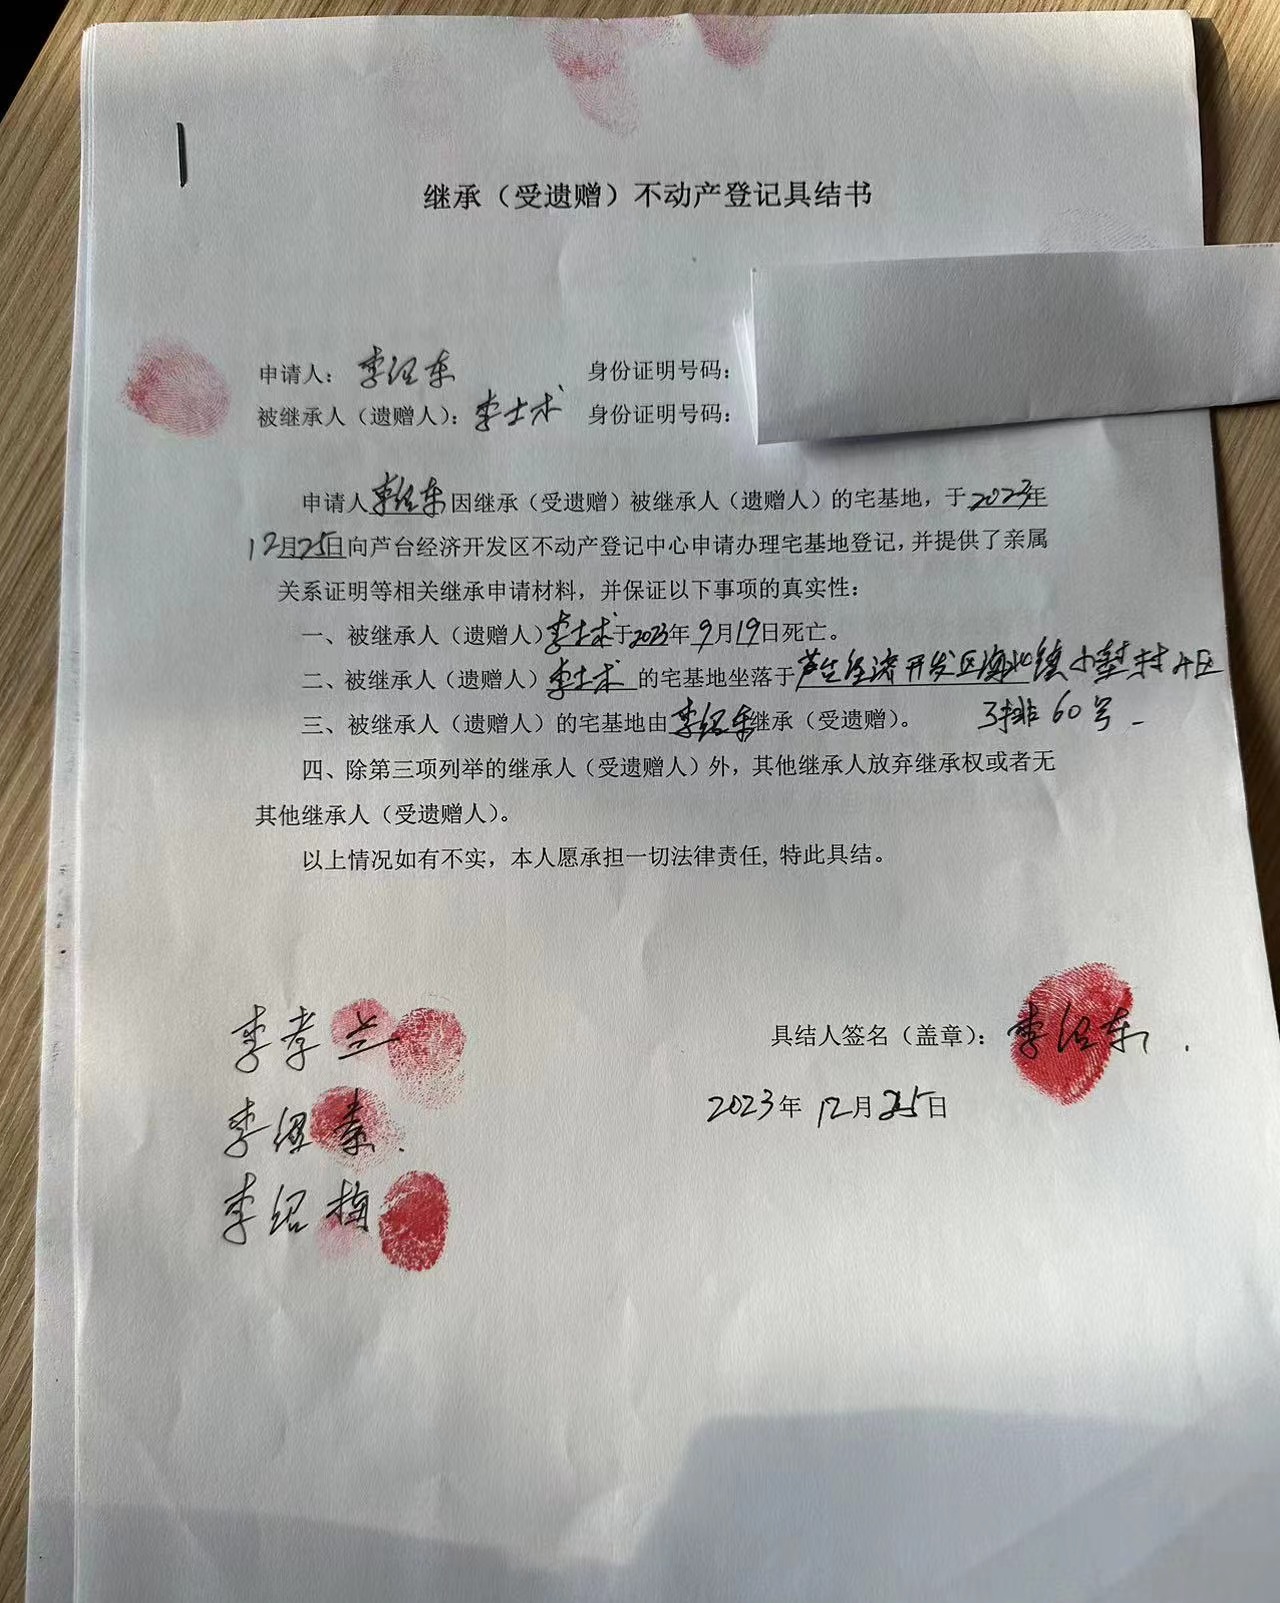 继承（受遗赠）不动产登记具结书
申请人：李绍东 身份证明号码：
被继承人（遗赠人）：李士术 身份证明号码：
申请人李绍东因继承（受遗赠）被继承人（遗赠人）的宅基地，于2023年
12月25日向芦台经济开发区不动产登记中心申请办理宅基地登记，并提供了亲属
关系证明等相关继承申请材料，并保证以下事项的真实性：
一、被继承人（遗赠人）李士术于2023年9月19日死亡。
二、被继承人（遗赠人）李士术的宅基地坐落于芦台经济开发区海北镇小 村 区
3排60号
三、被继承人（遗赠人）的宅基地由李绍东继承（受遗赠）。
四、除第三项列举的继承人（受遗赠人）外，其他继承人放弃继承权或者无
其他继承人（受遗赠人）。
以上情况如有不实，本人愿承担一切法律责任，特此具结。
李孝兰
具结人签名（盖章）：李绍东
李绍素
2023年12月25日
李绍梅